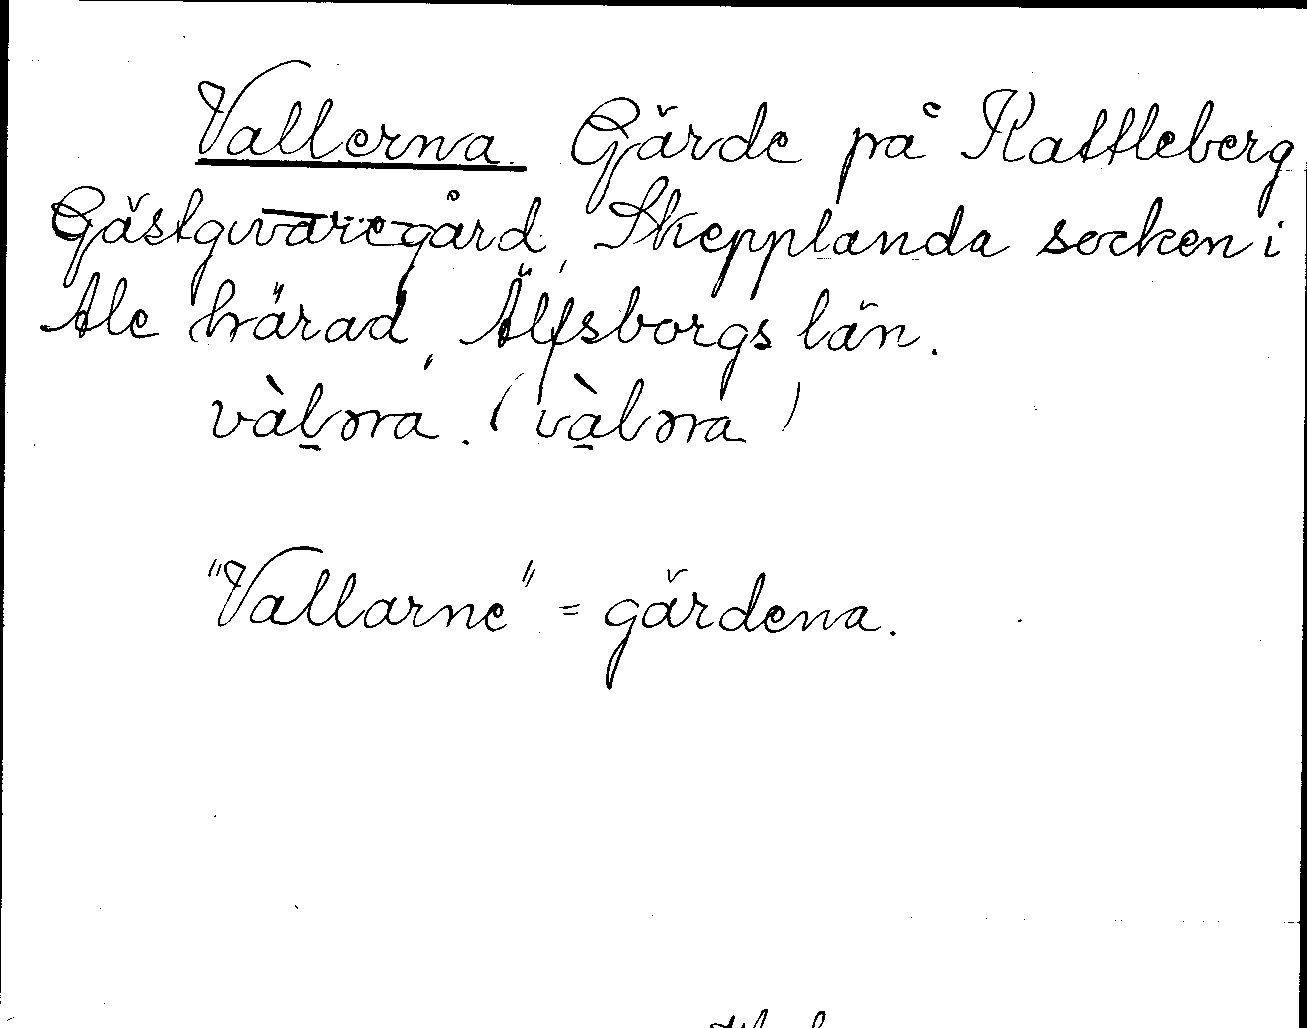 Vallerna. Gärde på Kattleberg
Gästgivaregård, Skepplanda socken i
Ale härad, Älfsborgs län.
vàl̠ɔna. (và̠lɔna)
"Vallarne" = gärdena.